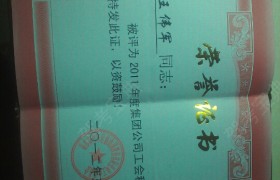 荣誉证书
王伟军 同志：
被评为2011年度集团公司工会
特发此证，以资鼓励！
二〇一 年